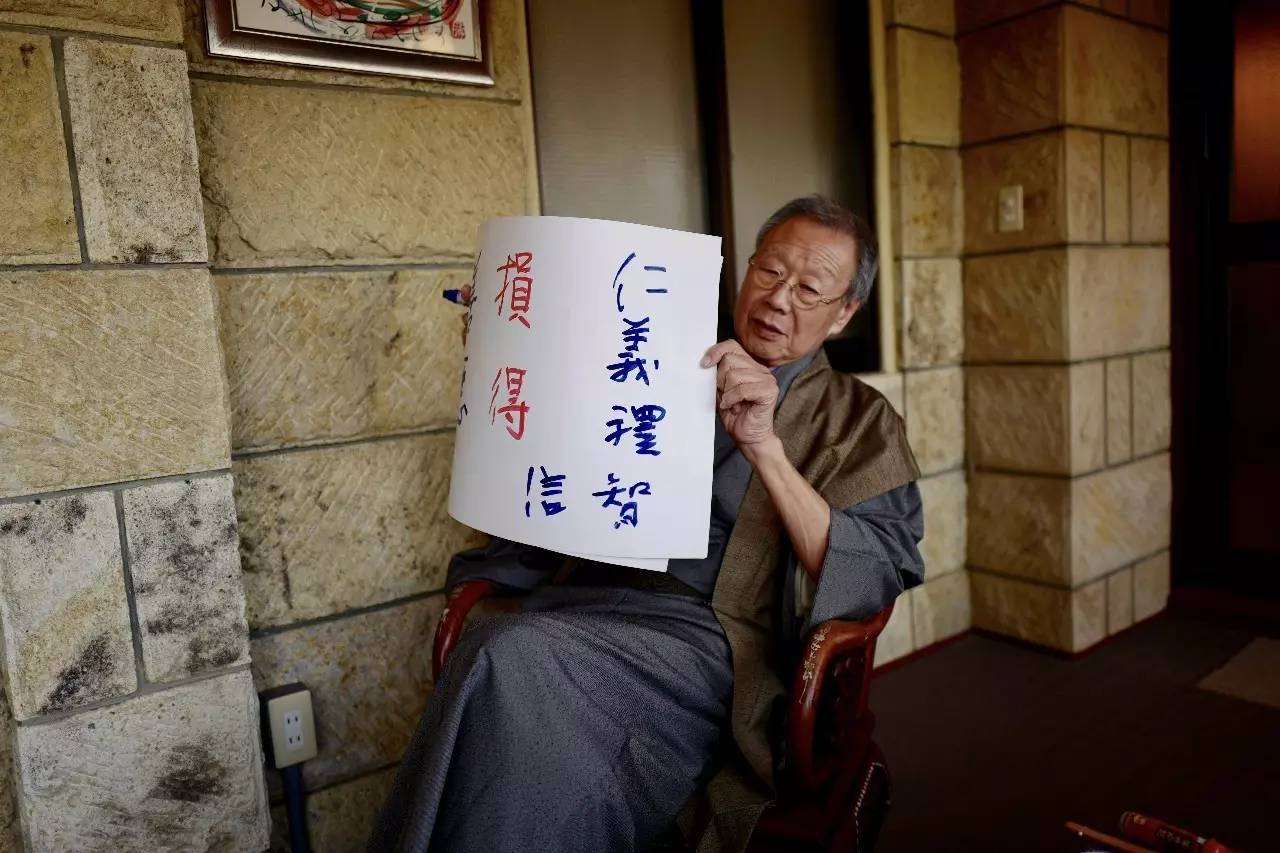 仁義禮智
信
損得